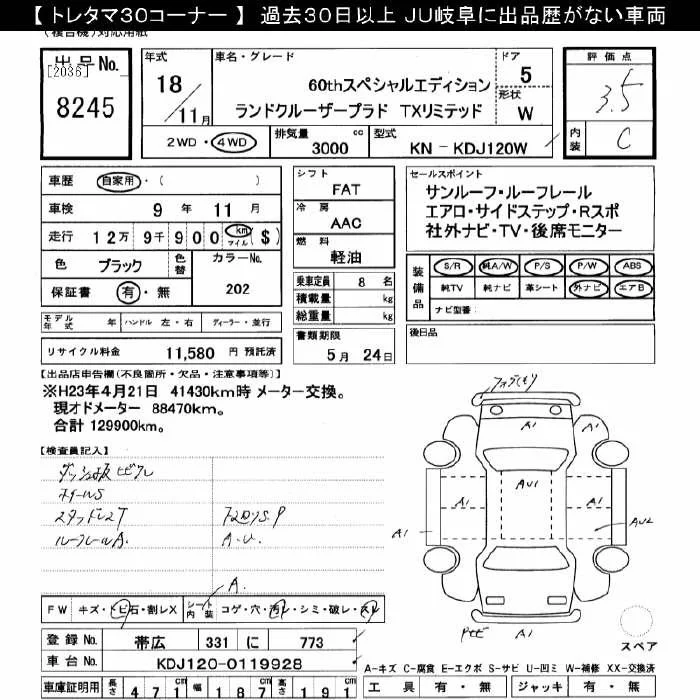 【 トレタマ30コーナー 】 過去30日以上 JU岐阜に出品歴がない車両
(複合機)対応用紙
出品No.
[2036]
8245
年式
18/11月
車名・グレード
60thスペシャルエディション
ランドクルーザープラド TXリミテッド
ドア 5
形状 W
2WD・4WD
排気量 3000 cc
型式 KN-KDJ120W
評価点
3.5
内装 C
車歴 自家用・( )
車検 9年 11月
走行 12万9千900 km マイル ($)
色 ブラック 色替
カラーNo. 202
保証書 有・無
シフト FAT
冷房 AAC
燃料 軽油
乗車定員 8名
積載量 kg
総重量 kg
書類期限
5月 24日
セールスポイント
サンルーフ・ルーフレール
エアロ・サイドステップ・Rスポ
社外ナビ・TV・後席モニター
装備品
S/R 純A/W P/S P/W ABS
純TV 純ナビ 革シート 外ナビ エアB
ナビ型番:
モデル年式 年 ハンドル 左・右 ディーラー・並行
後日品
リサイクル料金 11,580 円 預託済
【出品店申告欄(不良箇所・欠品・注意事項等)】
※H23年4月21日 41430km時 メーター交換。
現オドメーター 88470km。
合計 129900km。
【検査員記入】
ダッシュ板ヒビワレ
ホイールS
スタッドレスT
ルーフレールA.
A.U.
A.
A1
A1
AU1
A1
A1
A1
A1
AU2
A1
FW キズ・トビ石・割レX
シート内装 コゲ・穴・汚レ・シミ・破レ・スレ
登録No. 帯広 331 に 773
車台No. KDJ120-0119928
車庫証明用 長さ 471cm 幅 187cm 高さ 191cm
スペア
A-キズ C-腐食 E-エクボ S-サビ U-凹ミ W-補修 XX-交換済
工具 有・無 ジャッキ 有・無